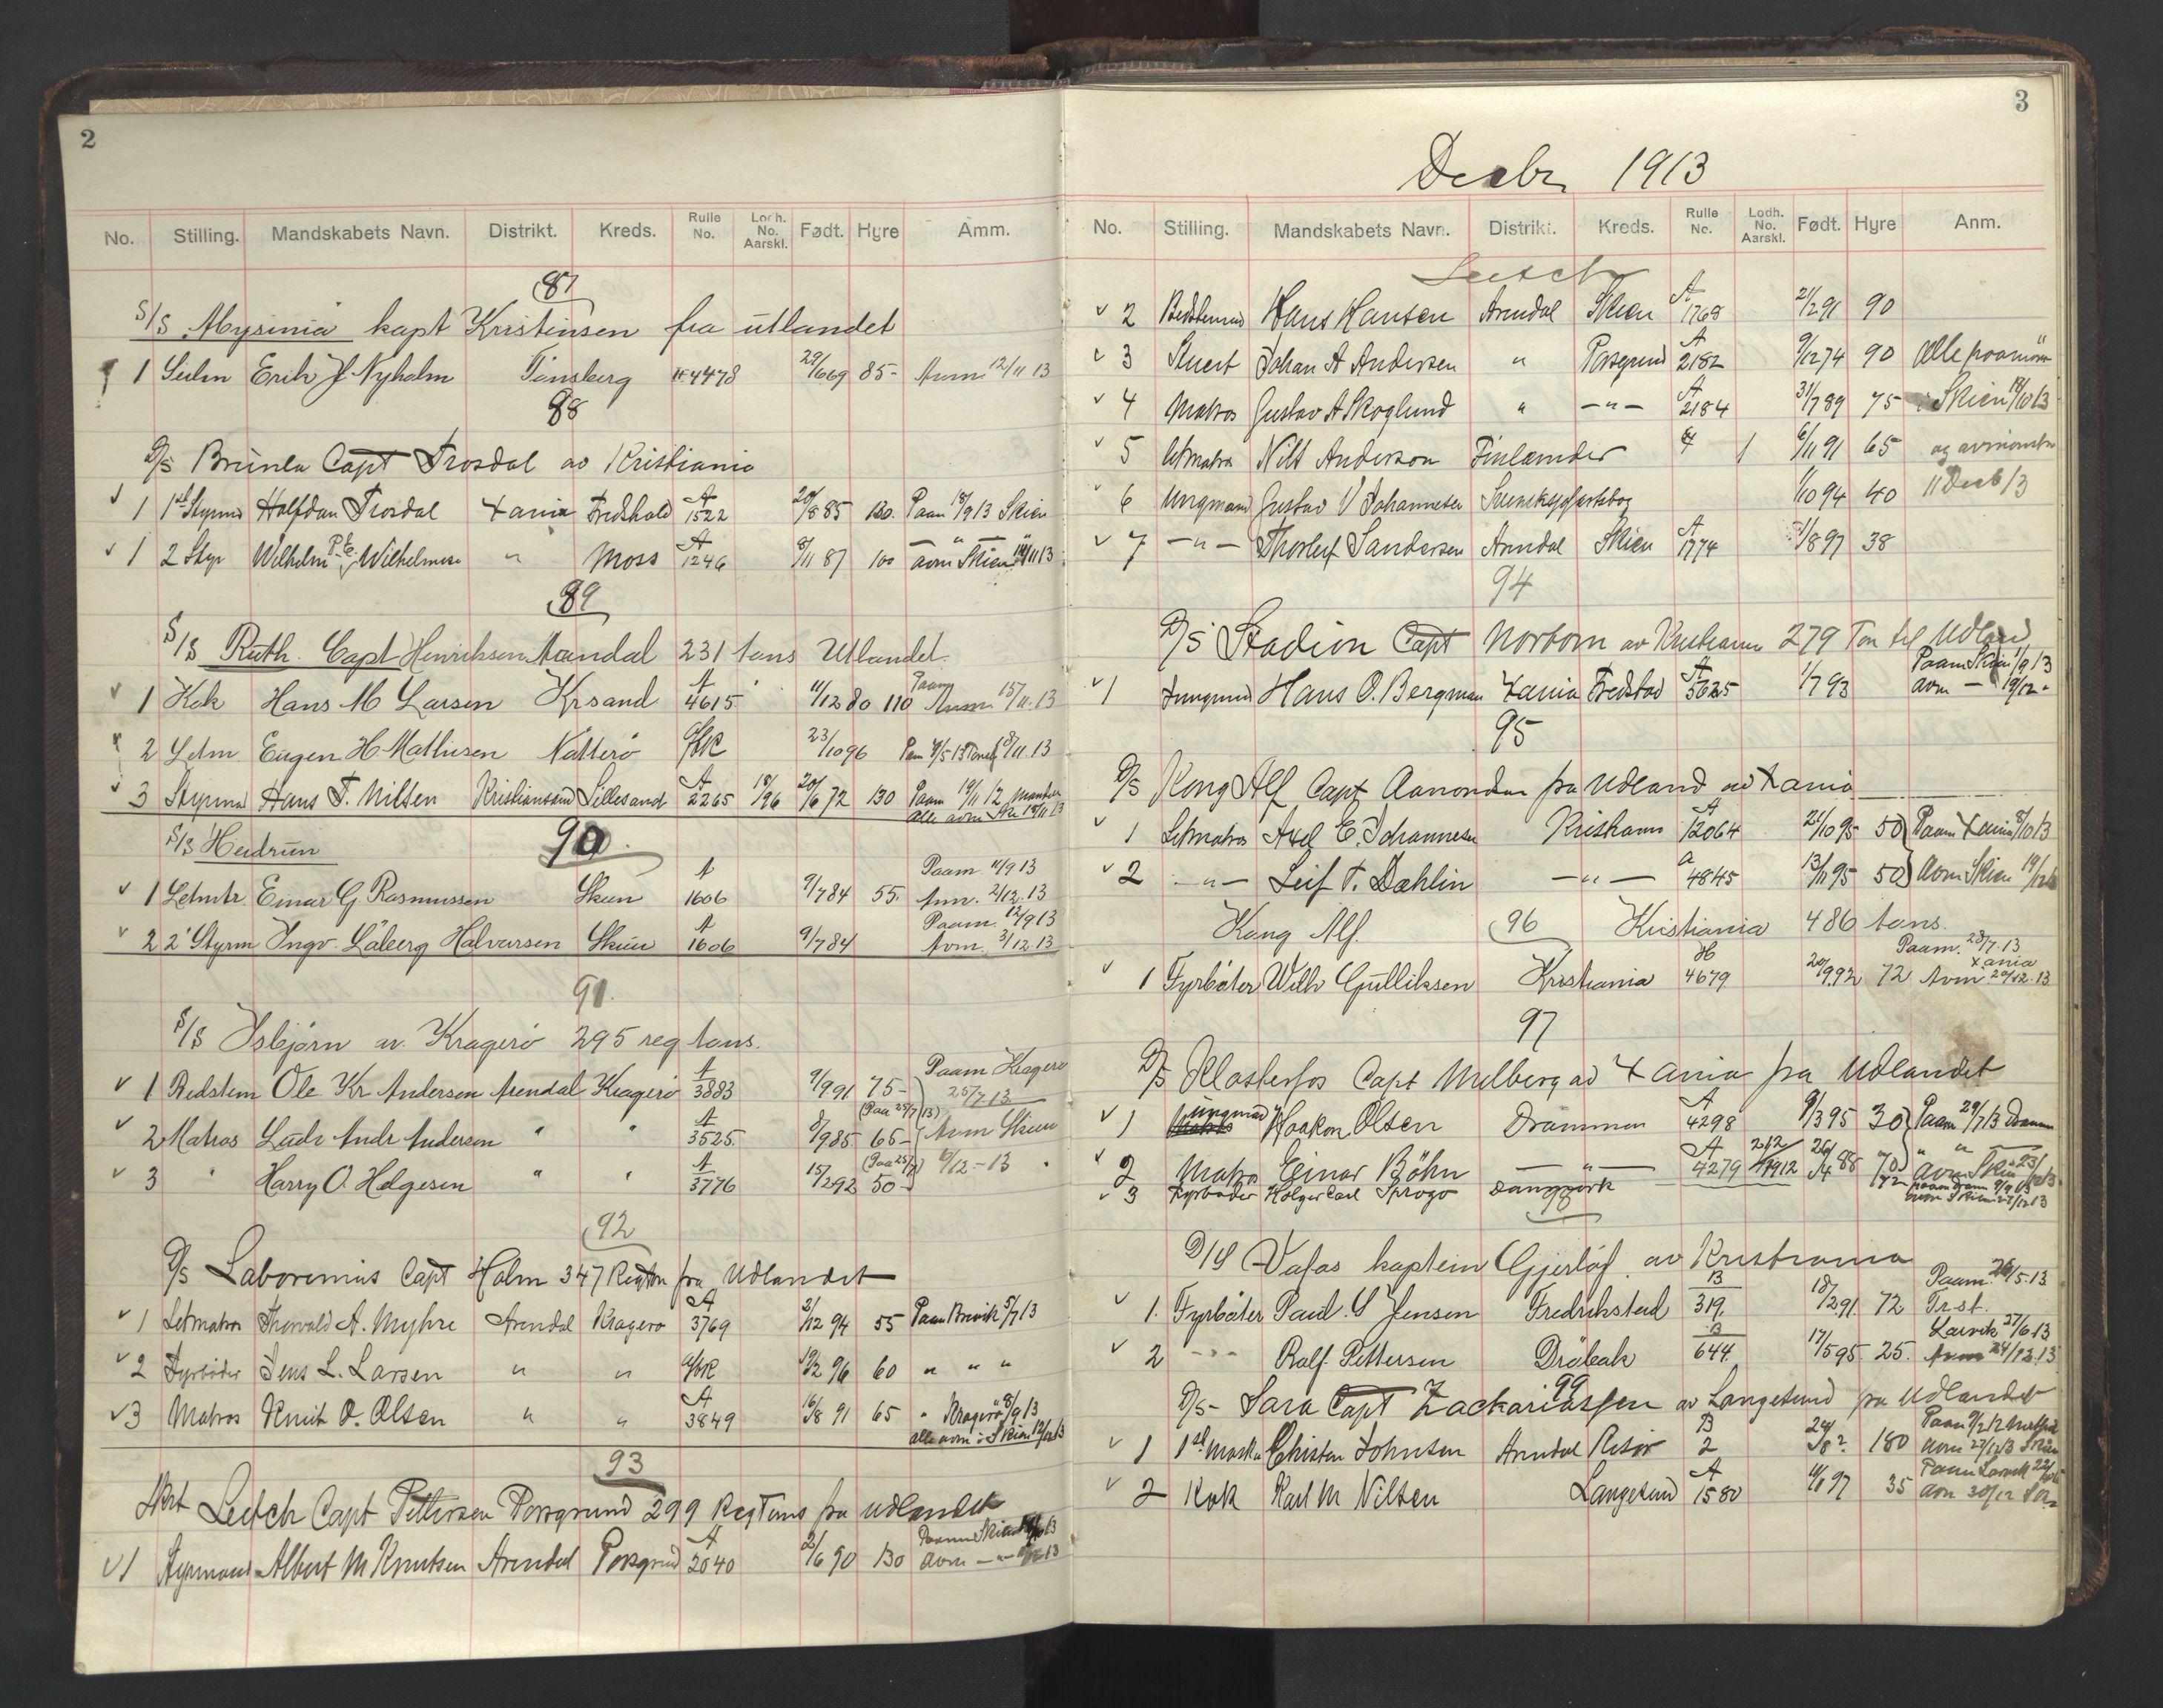 2
No. Stilling. Mandskabets Navn. Distrikt. Kreds. Rulle No. Lodh. No. Aarskl. Født. Hyre Amm.
87
S/S Abysinia kapt Kristensen fra utlandet
1 Erik J. Nyholm Tønsberg 4478 29/6 69 85- 12/11 13
88
D/S Brünla Capt Trosdal av Kristiania
1 1st Styrm Halfdan Trosdal Xania Fredshald A 1522 20/8 85 130. Paam 18/9 13 Skien
1 2 Styr Wilhelm Wilhelmsen " Moss A 1246 8/11 87 100 avm Skien 11 13
89
S/S Ruth. Capt Henriksen Mandal 231 tons Utlandet.
1 Kok Hans M Larsen Krsand A 4615 11/12 80 110 Paam 15/11.13
2 Letm. Eugen H. Mathisen Nøtterö 23/10 96 8/11.13
3 Styrm Hans T. Nilsen Kristiansand Lillesand A 2265 18/96 20/6 72 130 Paam 19/11 12
S/S Heidrun 90.
1 Letmtr. Einar G. Rasmussen Skien A 1606 9/7 84 55. Paam 11/9 13 Avm. 2/12.13
2 2' Styrm Ingv. Halvorsen Skien A 1606 9/7 84 Paam 12/9 13 Avm. 3/12.13
91.
S/S Isbjørn av. Kragerö 295 reg tons.
1 Bedstem Ole Kr Andersen Arendal Kragerö A 3883 9/9 91 75- Paam Kragerö 25/7 13
2 Matros Ludv Andr Andersen " " A 3525. 8/9 85 65- (Paa 25/7 13) Avm Skien
3 " Harry O. Helgesen " " A 3776 15/2 92 50- (Paa 25/7) 6/12-13
92
D/S Laboremus Capt Holm 347 Regton fra Udlandet
1 Letmatros Thorvald A. Myhre Arendal Kragerö A 3769 2/12 94 55 Paam Brevik 5/7 13
2 Fyrböder Jens L. Larsen " " 19/2 96 60 " " "
3 Matros Knut O. Olsen " " A 3849 16/8 91 65 " Kragerö 8/9 13
alle avm i Skien 12/12 13
93
Skt Leitch Capt Pettersen Porsgrund 299 Regtons fra udlandet
1 Styrmand Albert M Knutsen Arendal Porsgrund A 2040 2/6 90 130 Paam Skien avm -"- 13
3
Decbr 1913
No. Stilling. Mandskabets Navn. Distrikt. Kreds. Rulle No. Lodh. No. Aarskl. Født. Hyre Anm.
Leitch
2 Bedstemand Hans Hansen Arendal Skien A 1768 2/12 91 90
3 Stuert Johan A Andersen " Porsgrund A 2182 9/12 74 90 Alle paamönstr
4 Matros Gustav A Skoglund " -"- A 2184 31/7 89 75 i Skien 18/10 13
5 Letmatros Nils Anderson Finlænder 6/11 91 65 og avmönstr
6 Ungmand Gustav V Johannesen 1/10 94 40 11 Decb 13
7 -"- Thorleif Sandersen Arendal Skien A 1774 /8 97 38
94
D/S Stadion Capt Norbom av Kristiania 279 Ton til Udland
1 Jungmand Hans O. Bergman Xania Fredstad A 5625 1/7 93 Paam Skien 1/9 13 avm - 19/12 -
95
D/S Kong Alf Capt Aanondsen fra Udland av Xania
1 Letmatros Axel E. Johannesen Kristiania A 12064 21/10 95 50 Paam Xania 8/10 13
2 -"- Leif T. Dæhlin -"- a 4845 13/11 95 50 Avm Skien 19/12
Kong Alf. 96 Kristiania 486 tons.
1 Fyrböter Wilh Gulliksen Kristiania H 4679 20/9 92 72 Paam. 28/7.13 Xania Avm 20/12.13
97
D/S Klosterfos Capt Melberg av Xania fra Udlandet
1 ungmand Haakon Olsen Drammen A 4298 9/3 95 30 Paam 29/7 13 Dramm
2 Matros Einar Böhn -"- A 4279 212/1912 26/4 88 70 " " avm Skien 23/12 13
3 Fyrböder Holger Carl Sprogö Danmark 72 paam Dramm 9/9 13 avm Skien 27/12 13
98
D/S Vafos kaptein Gjerløf. av Kristiania
1. Fyrböter Paul. S Jensen Fredrikstad B 319. 18/2 91. 72 Paam. 26/5.13 Frst.
2 -"- Ralf. Pettersen Dröbak B 644. 17/5 95. 25. Larvik 27/6 13 Avm 24/12.13
99
D/S- Sara Capt Zachariassen av Langesund fra Udlandet
1 1st Mask Christen Johnsen Arendal Risör B 2 24/8 180 Paam 9/2 12 avm 29/12 13 Skien
2 Kok Karl M Nilsen Langesund A 1580 97 35 Paam Larvik 22/ avm 30/12